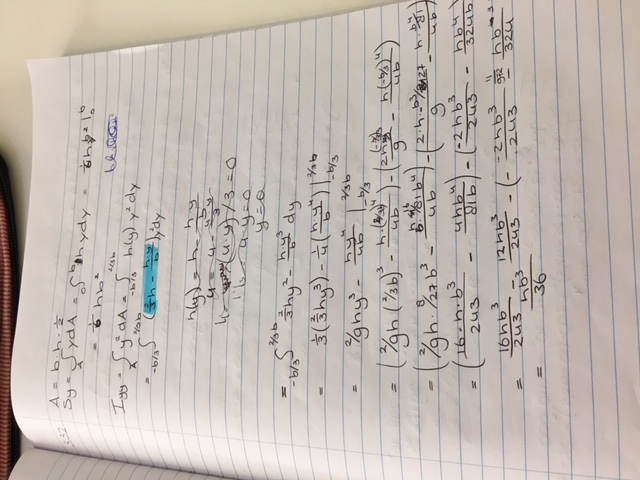 3.32
A = b.h.½
Sy = ∫_A y dA = ₀∫ᵇ h y dy = ⅙ h b² |₀ᵇ
= ⅙ hb²
Iyy = ∫_A y² dA = ∫_{-b/3}^{2/3b} h(y) y² dy
= ∫_{-b/3}^{2/3b} (⅔h - h·y/b) y² dy
h(y) = h - h·y/b
4 = 4 - 4·y/3
(4·y)/3 = 0
4·y = 0
y = 0
= ∫_{-b/3}^{2/3b} ⅔hy² - h·y³/b dy
= ⅓(⅔hy³) - ¼(h·y⁴/b) |_{-b/3}^{2/3b}
= 2/9hy³ - hy⁴/4b |_{-b/3}^{2/3b}
= (2/9h(2/3b)³ - h·(2/3b)⁴/4b) - (2h(-b/3)³/9 - h(-b/3)⁴/4b)
= (2/9h·8/27b³ - h·16/81b⁴/4b) - (2·h·-b³/27/9 - h·b⁴/81/4b)
= (16·h·b³/243 - 4hb⁴/81b) - (-2hb³/243 - hb⁴/324b)
= 16hb³/243 - 12hb³/243 - (- -2hb³/243 - 11/972 hb³/324
= hb³/36